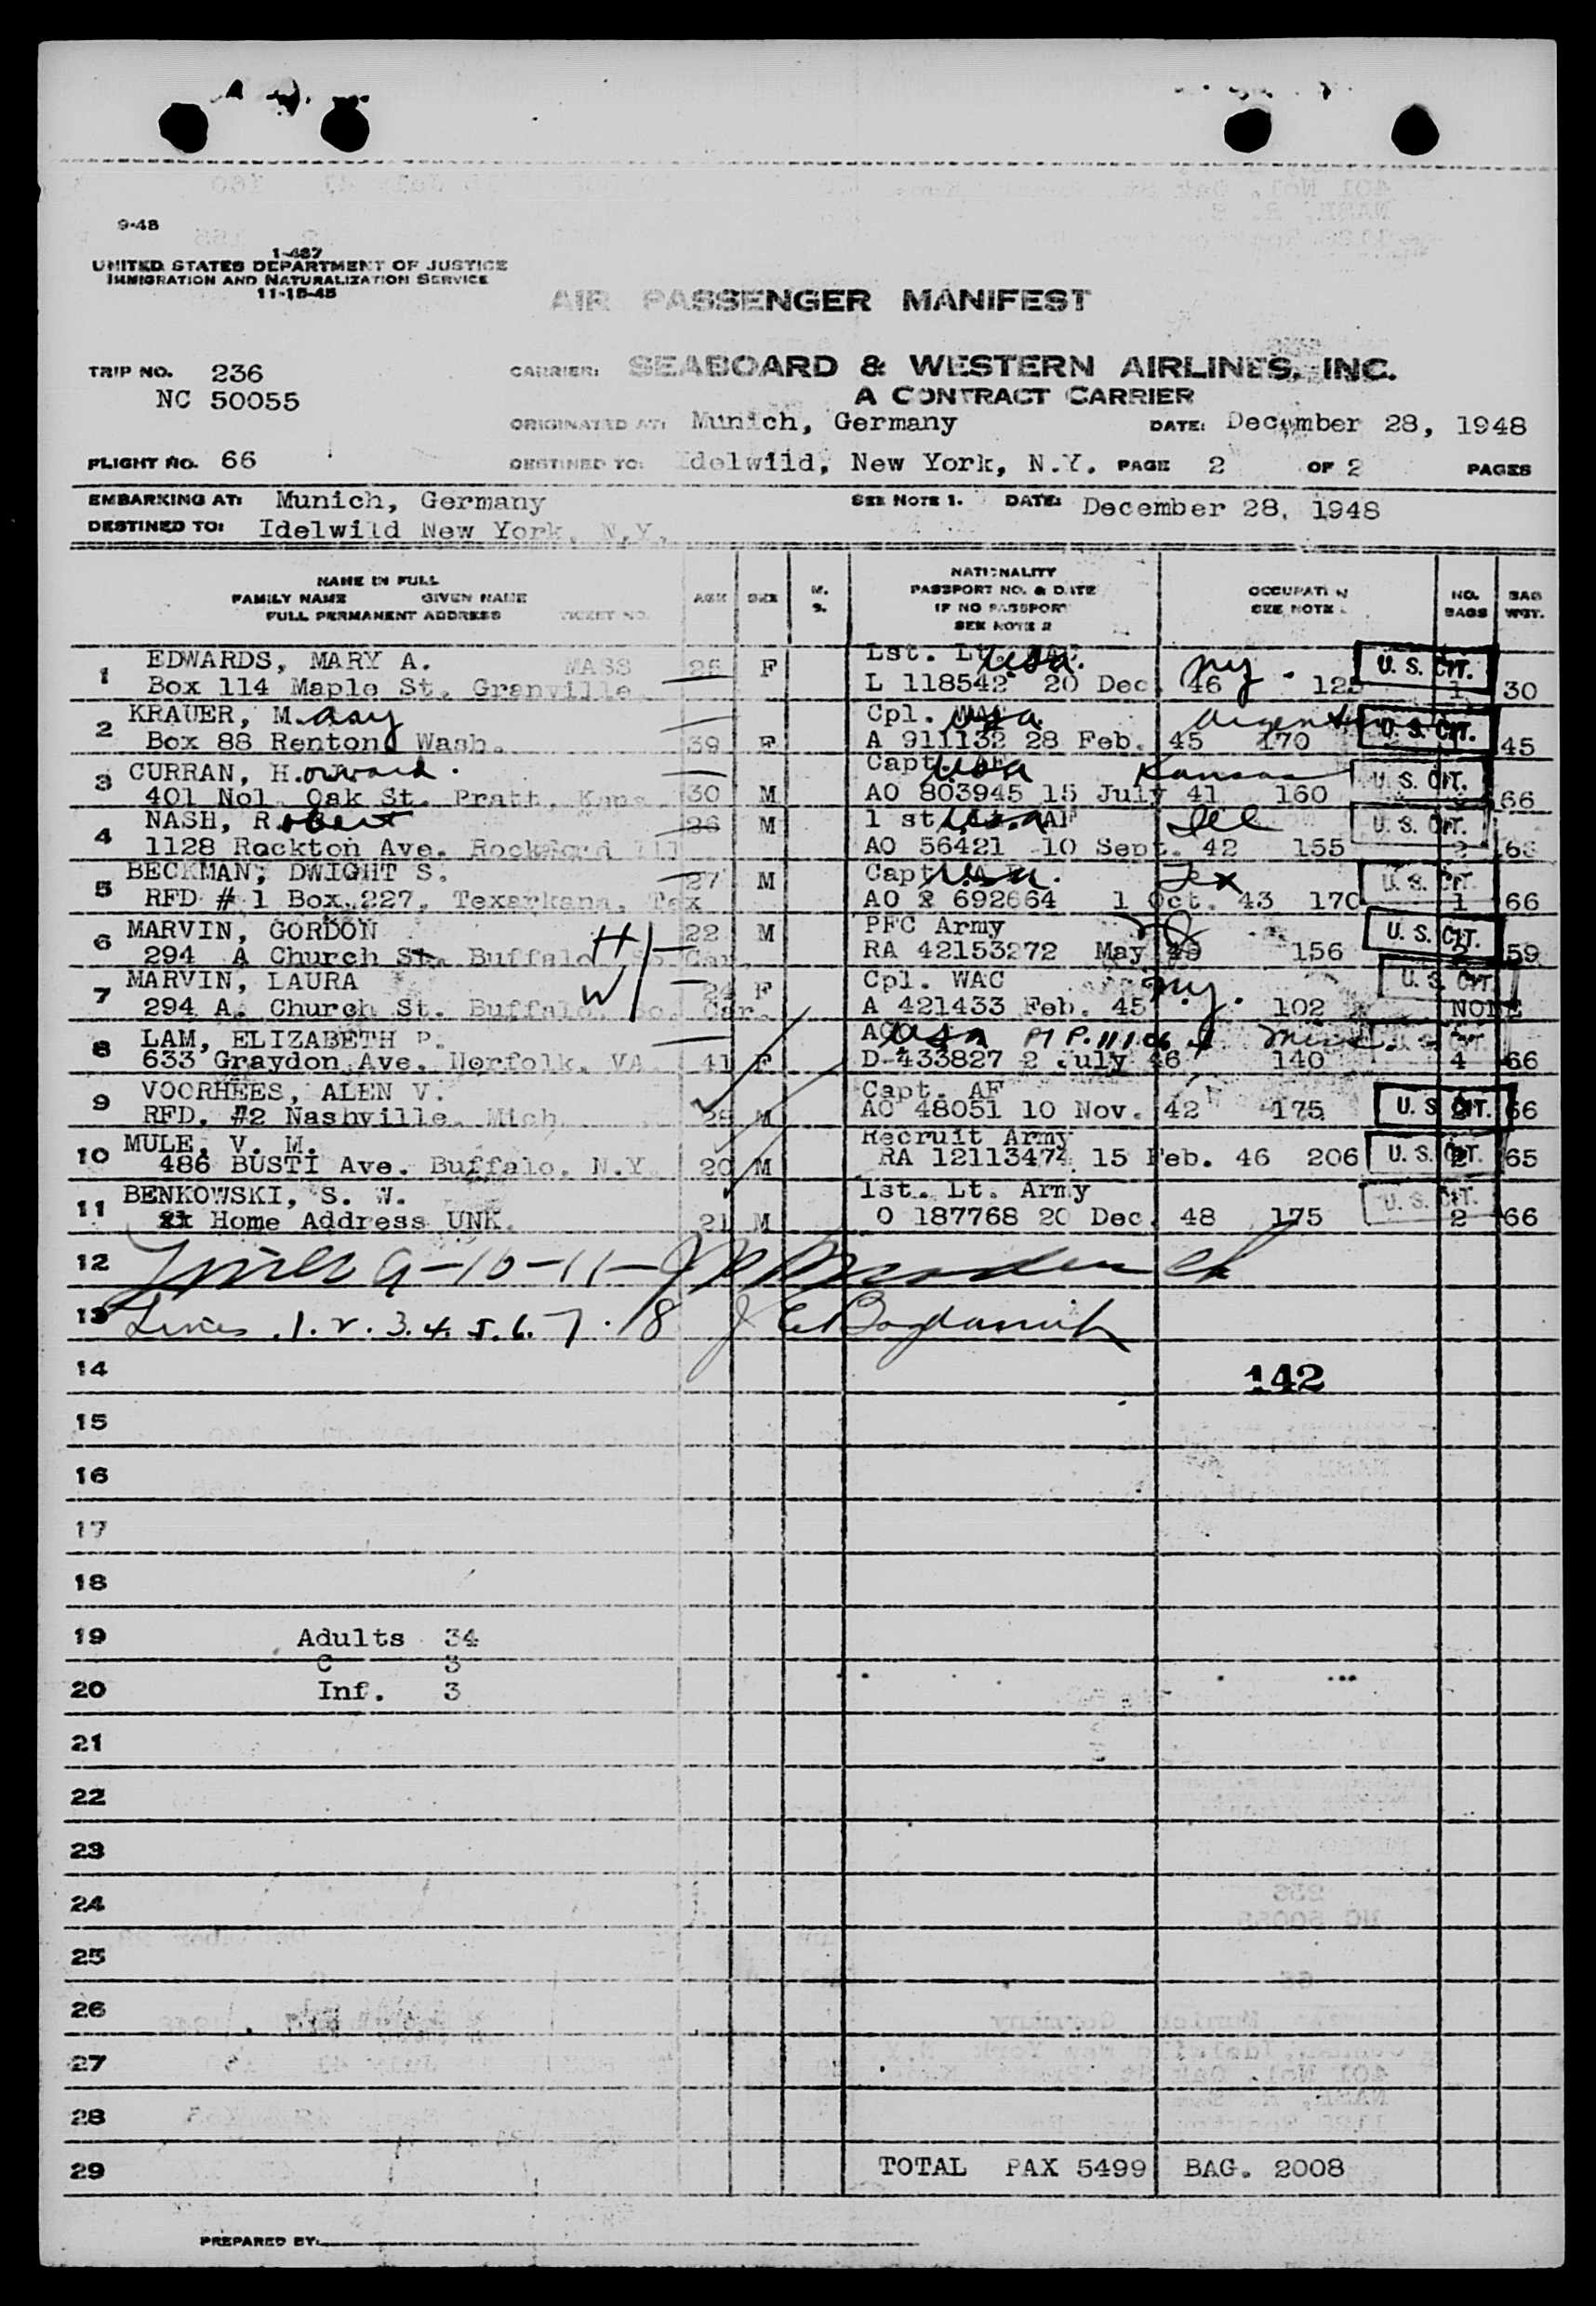 9-48
1-487
UNITED STATES DEPARTMENT OF JUSTICE
IMMIGRATION AND NATURALIZATION SERVICE
11-15-45
AIR PASSENGER MANIFEST
TRIP NO. 236 CARRIER: SEABOARD & WESTERN AIRLINES, INC.
NC 50055 A CONTRACT CARRIER
ORIGINATED AT: Munich, Germany DATE: December 28, 1948
FLIGHT NO. 66 DESTINED TO: Idelwild, New York, N.Y. PAGE 2 OF 2 PAGES
EMBARKING AT: Munich, Germany SEE NOTE 1. DATE: December 28, 1948
DESTINED TO: Idelwild New York, N.Y.
NAME IN FULL
FAMILY NAME GIVEN NAME
FULL PERMANENT ADDRESS TICKET NO. AGE SEX M. S. NATIONALITY PASSPORT NO. & DATE IF NO PASSPORT SEE NOTE 2 OCCUPATION SEE NOTE NO. BAGS BAG WGT.
1 EDWARDS, MARY A. MASS F Lst. Lt. USA. NY. U. S. CIT.
Box 114 Maple St. Granville L 118542 20 Dec. 46 1 30
2 KRAUER, M. Cpl. WAC USA Argentina U. S. CIT.
Box 88 Renton, Wash. 39 F A 911132 28 Feb. 45 170 1 45
3 CURRAN, Howard. Capt. USA Kansas U. S. CIT.
401 Nol. Oak St. Pratt, Kans. 30 M AO 803945 15 July 41 160 66
4 NASH, Robert 26 M 1 st AF Ill U. S. CIT.
1128 Rockton Ave. Rockford Ill AO 56421 10 Sept. 42 155 2
5 BECKMAN, DWIGHT S. 27 M Capt USA. Tex U. S. CIT.
RFD # 1 Box 227, Texarkana, Tex AO 692664 1 Oct. 43 170 1 66
6 MARVIN, GORDON H 22 M PFC Army U. S. CIT.
294 A Church St. Buffalo So Car. RA 42153272 May 156 2 59
7 MARVIN, LAURA W 24 F Cpl. WAC N.Y. U. S. CIT.
294 A. Church St. Buffalo. So. Car. A 421433 Feb. 45 102 NONE
8 LAM, ELIZABETH P. USA Miss. U. S. CIT.
633 Graydon Ave. Norfolk, VA. 41 F D-433827 2 July 46 140 4 66
9 VOORHEES, ALEN V. Capt. AF
RFD. #2 Nashville. Mich 28 M AO 48051 10 Nov. 42 175 U. S. CIT. 66
10 MULE, V. M. Recruit Army
486 BUSTI Ave. Buffalo, N.Y. 20 M RA 12113474 15 Feb. 46 206 U. S. CIT. 2 65
11 BENKOWSKI, S. W. 1st. Lt. Army U. S. CIT.
Home Address UNK. 21 M O 187768 20 Dec. 48 175 2 66
12 Lines 9-10-11-
13 Lines .1.2.3.4.5.6.7.8 J E Bogdanich
14 142
15
16
17
18
19 Adults 34
C 3
20 Inf. 3
21
22
23
24
25
26
27
28
29 TOTAL PAX 5499 BAG. 2008
PREPARED BY: